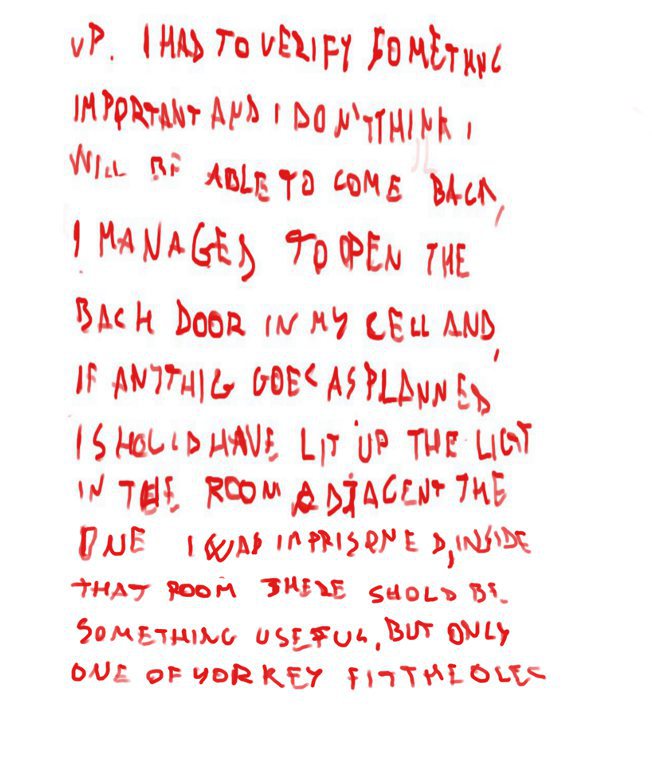 UP. I HAD TO VERIFY SOMETHNG
IMPORTANT AND I DON'T THINK I
WILL BE ABLE TO COME BACK,
I MANAGED TO OPEN THE
BACH DOOR IN MY CELL AND,
IF ANYTHIG GOES AS PLANNED
I SHOULD HAVE LIT UP THE LIGT
IN THE ROOM ADJACENT THE
ONE I WAS IMPRISONED, INSIDE
THAT ROOM THERE SHOLD BE
SOMETHING USEFUL, BUT ONLY
ONE OF YOR KEY FIT THE OLES